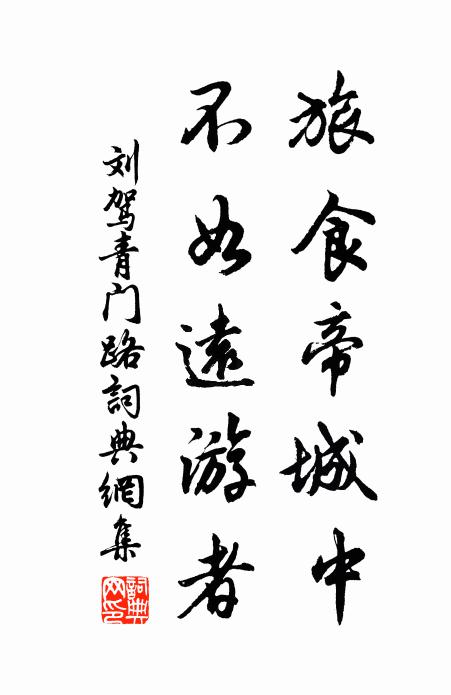 旅食帝城中
不如遠游者
刘驾青门路詞典網集
詞典網印